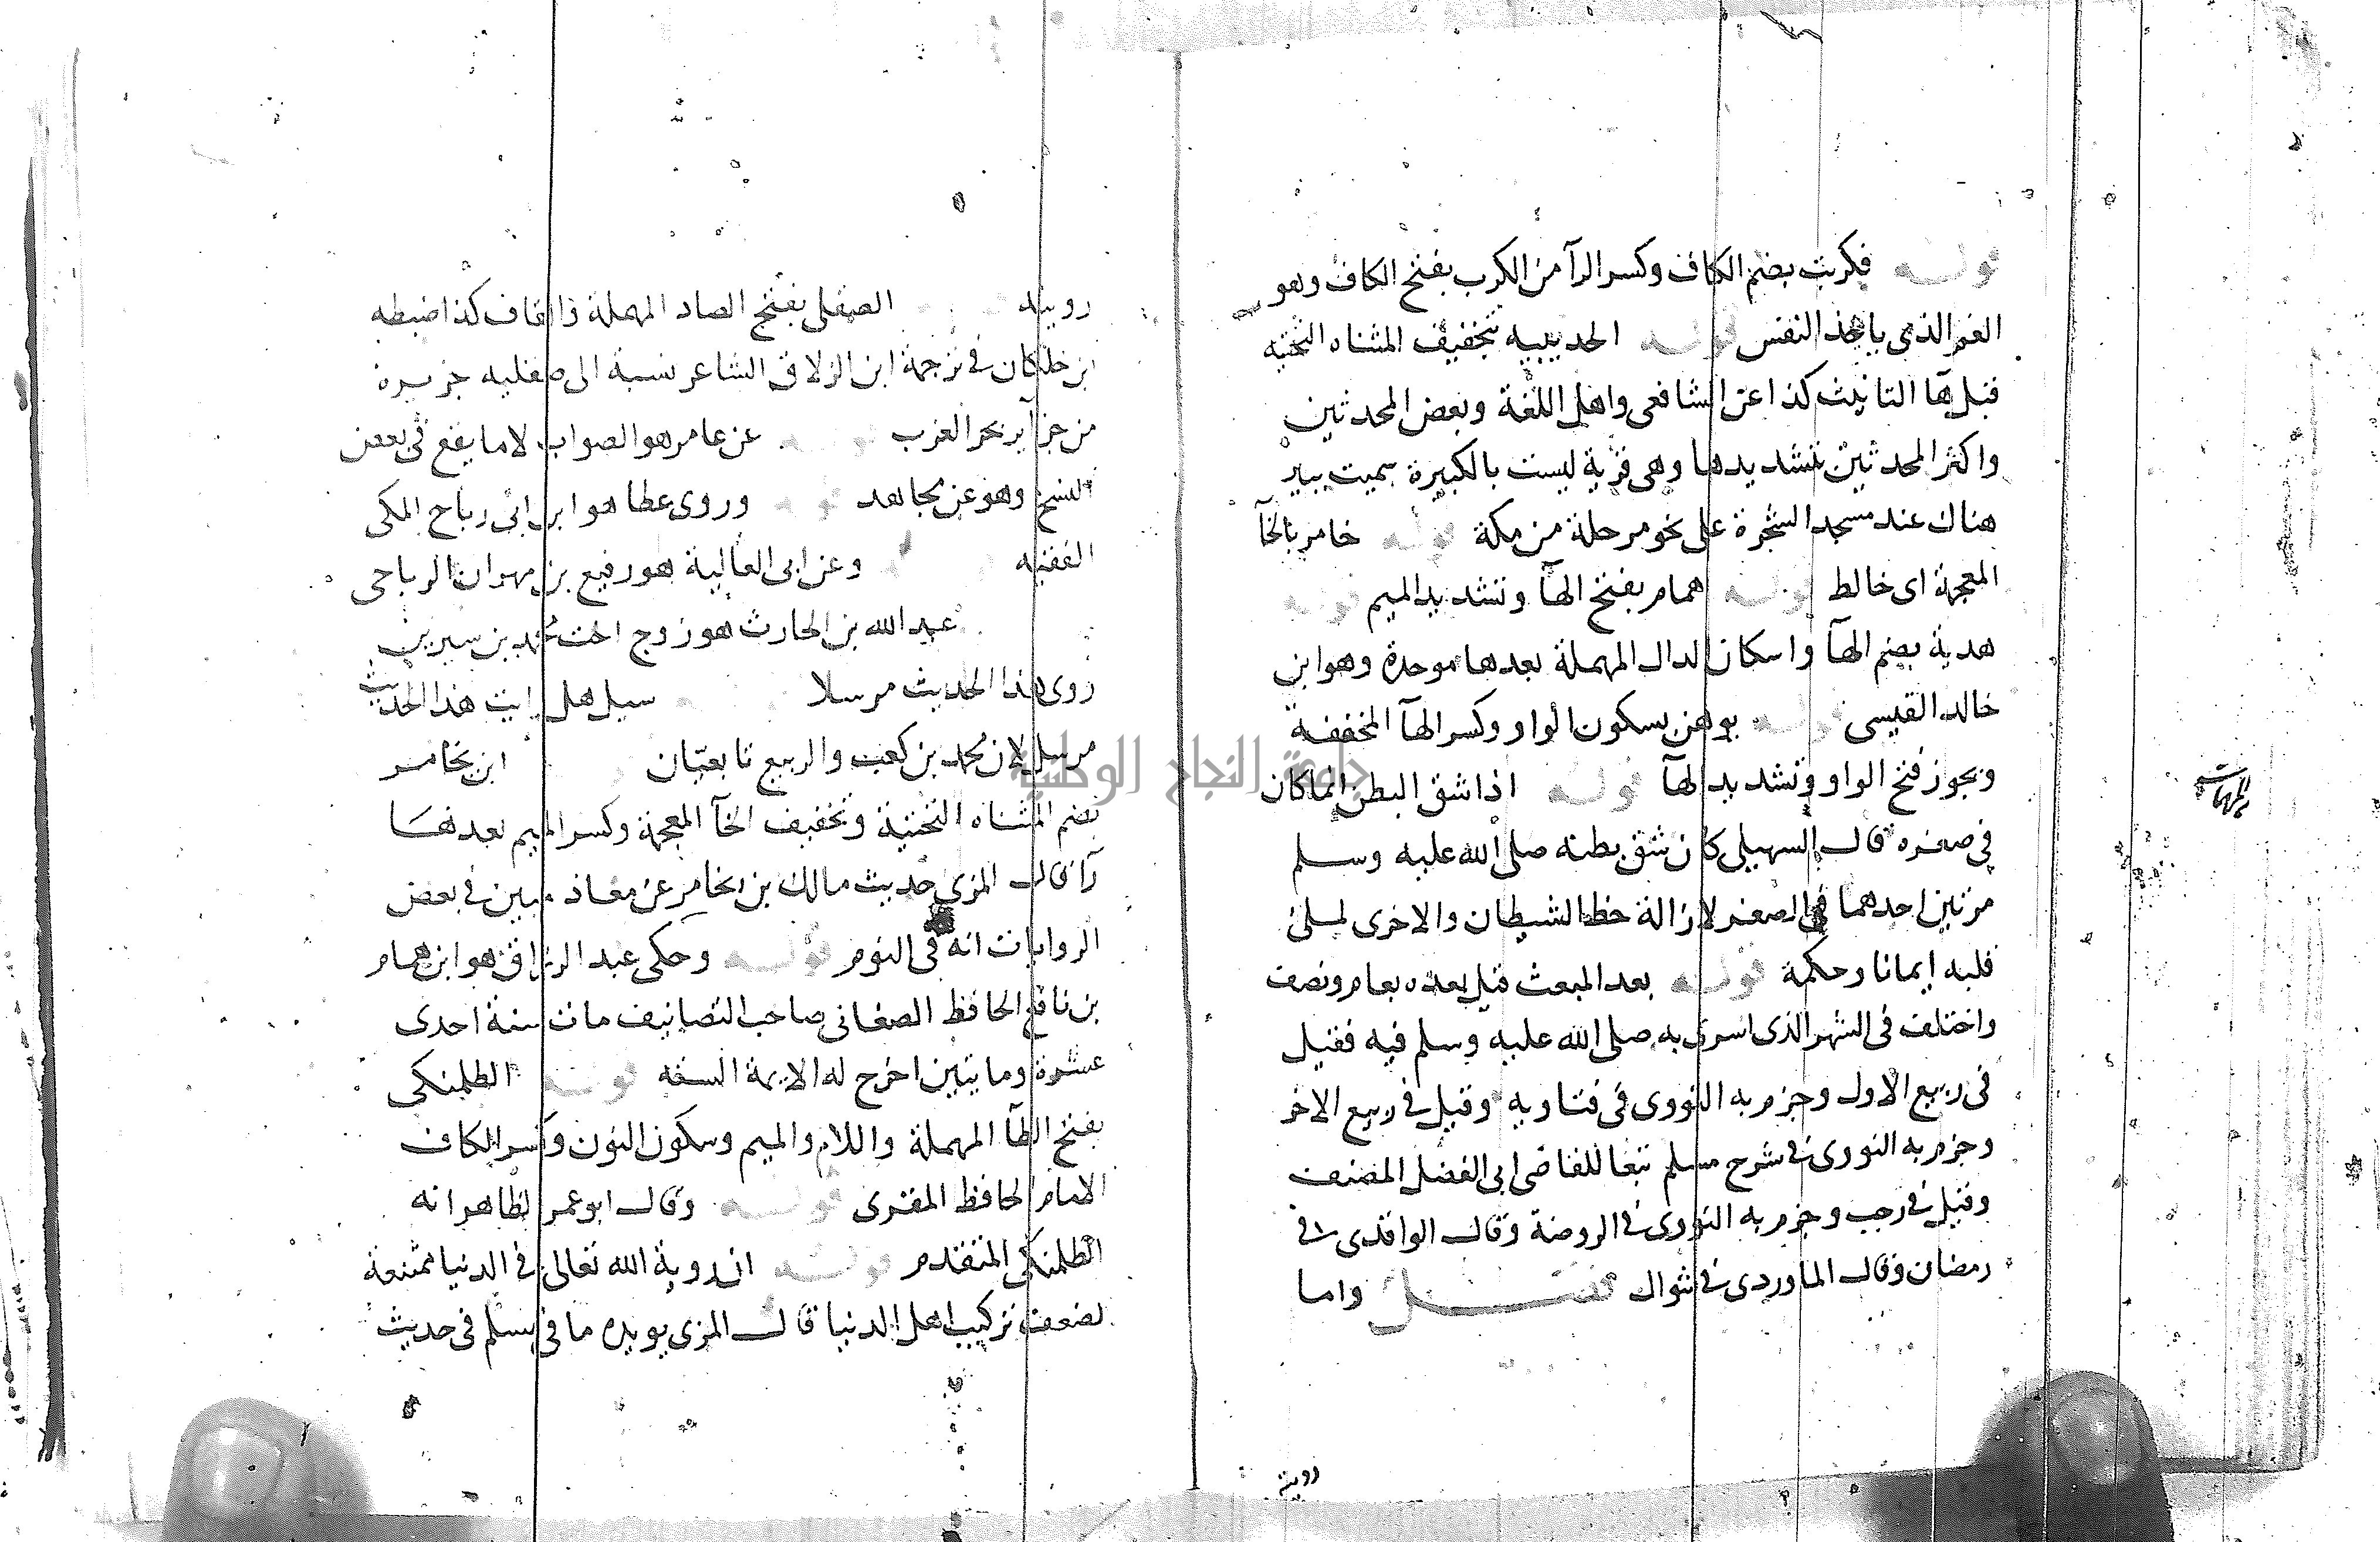 قوله فكربت بضم الكاف وكسر الرآ من الكرب بفتح الكاف وهو
الغم الذى ياخذ النفس قوله الحديبيه بتخفيف المثناه التحتيه
قبل هآ التانيث كذا عن الشافعى واهل اللغة وبعض المحدثين
واكثر المحدثين بتشديدها وهى قرية ليست بالكبيرة سميت ببير
هناك عند مسجد الشجرة على نحو مرحلة من مكة قوله خامر بالخآ
المعجمة اى خالط قوله همام بفتح الهآ وتشديد الميم قوله
هدبة بضم الهآ واسكان الدال المهملة بعدها موحدة وهو ابن
خالد القيسى قوله يوهن بسكون الواو وكسر الهآ المخففة
ويجوز فتح الواو وتشديد الهآ قوله اذا شق البطن انما كان
فى صغره قال السهيلى كان شق بطنه صلى الله عليه وسلم
مرتين احدهما فى الصغر لازالة حظ الشيطان والاخرى لملئ
قلبه ايمانا وحكمة قوله بعد المبعث قيل بعده بعام ونصف
واختلف فى الشهر الذى اسرى به صلى الله عليه وسلم فيه فقيل
فى ربيع الاول وجزم به النووى فى فتاويه وقيل فى ربيع الاخر
وجزم به النووى فى شرح مسلم تبعا للقاضى ابى الفضل المصنف
وقيل فى رجب وجزم به النووى فى الروضة وقال الواقدى فى
رمضان وقال الماوردى فى شوال فصل واما
رويته
رويته الصقلى بفتح الصاد المهملة والقاف كذا ضبطه
ابن خلكان فى ترجمة ابن الزلاق الشاعر نسبة الى صقليه جزيرة
من جزآير بحر الغرب قوله عن عامر هو الصواب لا ما يقع فى بعض
النسخ وهو عن مجاهد قوله وروى عطا هو ابن ابى رباح المكى
الفقيه وعن ابى العالية هو رفيع بن مهران الرياحى
عبد الله بن الحارث هو زوج اخت محمد بن سيرين
روى هذا الحديث مرسلا سيل هل رايت هذا الحديث
مرسل لان محمد بن كعب والربيع تابعيان ابن يخامر
بضم المثناه التحتية وتخفيف الخآ المعجمة وكسر الميم بعدها
رآ قال المزى حديث مالك بن يخامر عن معاذ مبين فى بعض
الروايات انه فى النوم قوله وحكى عبد الرزاق هو ابن همام
بن نافع الحافظ الصغانى صاحب التصانيف مات سنة احدى
عشرة ومايتين اخرج له الايمة الستة قوله الطلمنكى
بفتح الطآ المهملة واللام والميم وسكون النون وكسر الكاف
الامام الحافظ المقرى قوله وقال ابو عمر الظاهر انه
الطلمنكى المتقدم قوله ان روية الله تعالى فى الدنيا ممتنعة
لضعف تركيب اهل الدنيا قال المزى يويده ما فى مسلم فى حديث
جامعة النجاح الوطنية